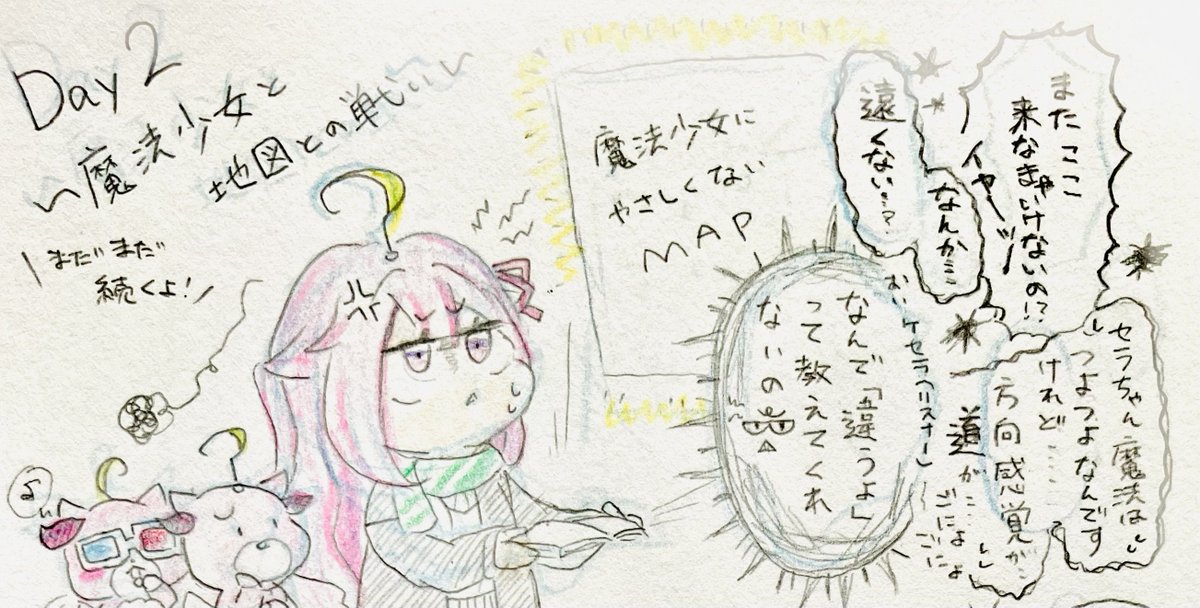 Day 2
〜魔法少女と
地図との戦い〜
まだまだ
続くよ!
魔法少女に
やさしくない
MAP
またここ
来なきゃいけないの!?
イヤーッ
遠くない…?
なんか…
おい
なんで「違うよ」
って教えてくれ
ないの
セラちゃん魔法は
つよつよなんです
けれど……
方向感覚が…
道が…
ごにょごにょ